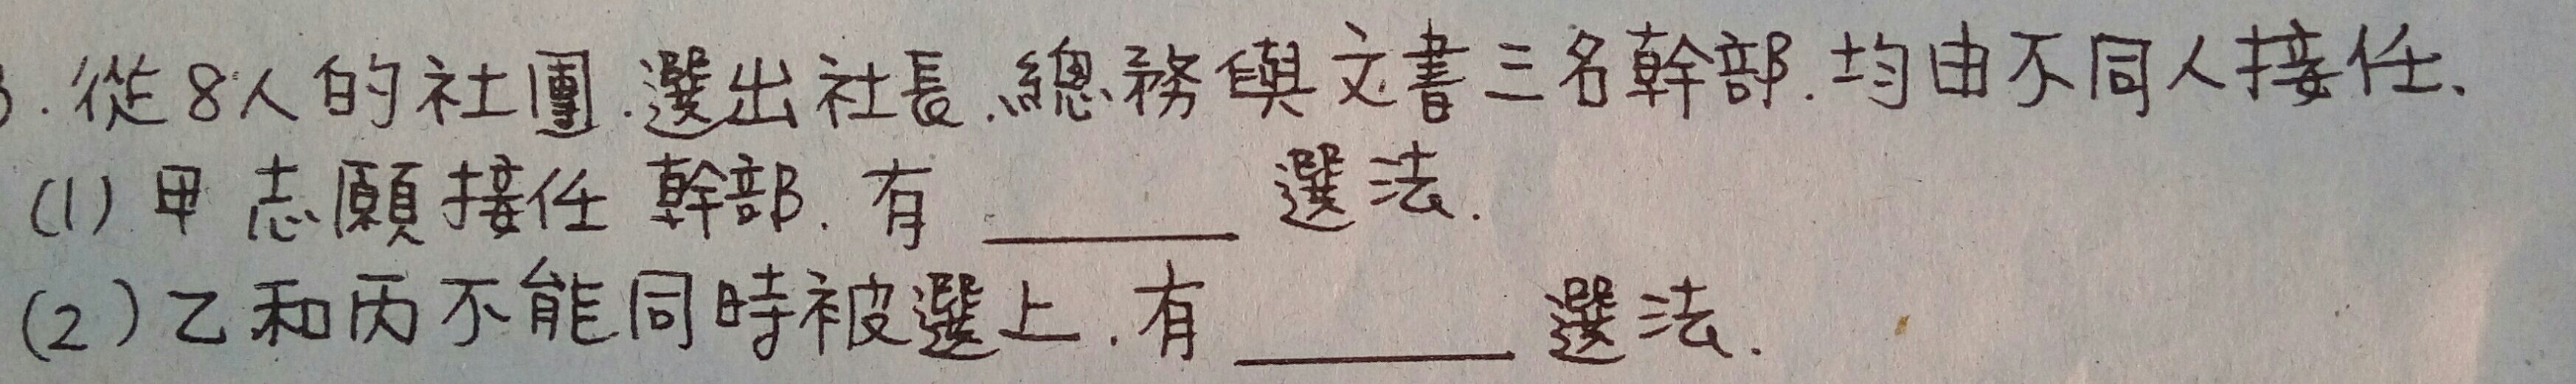 3.從8人的社團.選出社長.總務與文書三名幹部.均由不同人接任.
(1)甲志願接任幹部.有______選法.
(2)乙和丙不能同時被選上.有______選法.